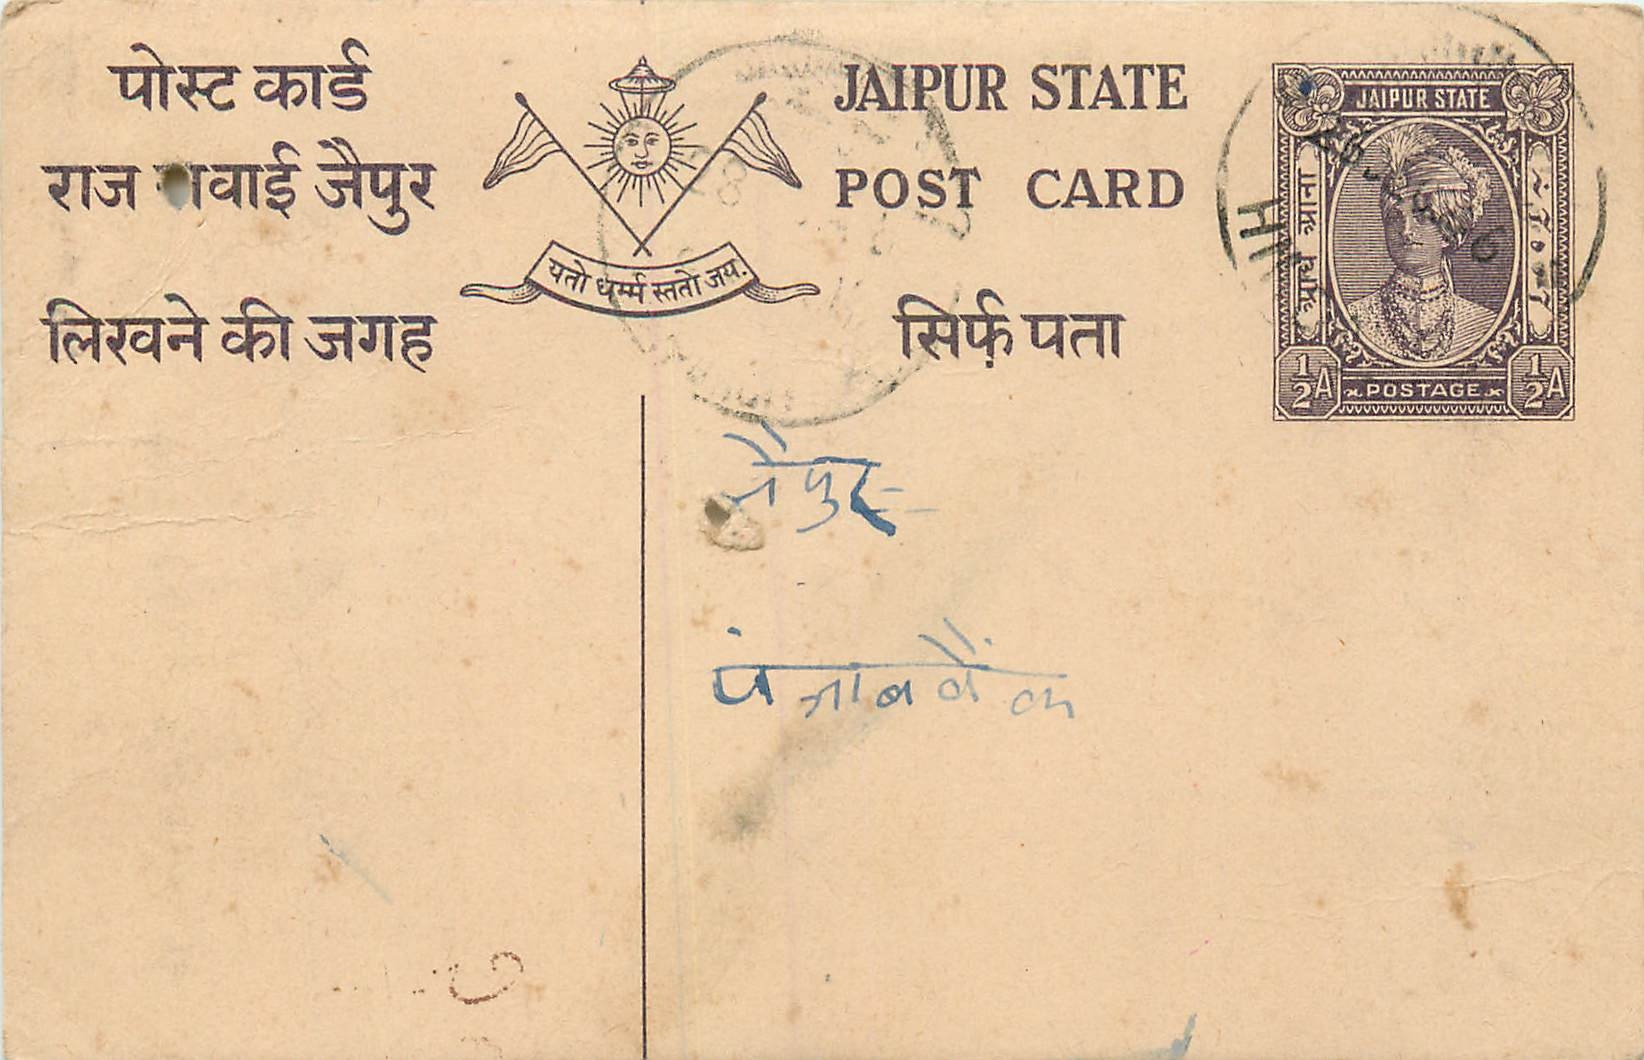 पोस्ट कार्ड
राज सवाई जैपुर
लिखने की जगह
यतो धर्म्म स्ततो जय.
JAIPUR STATE
POST CARD
सिर्फ़ पता
JAIPUR STATE
आध आना
POSTAGE
½A ½A
जैपुर
पंजाब बैंक